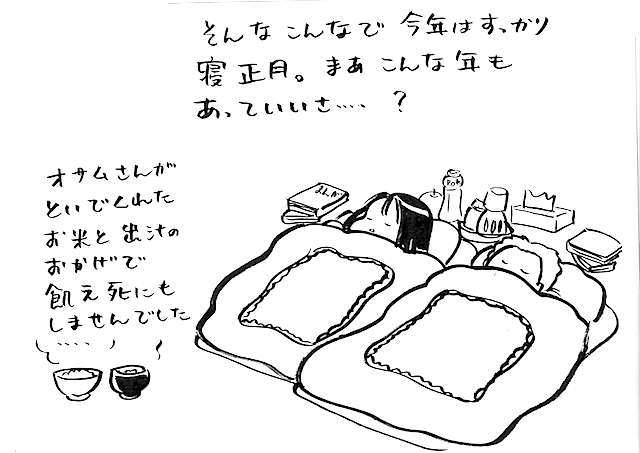 そんなこんなで 今年はすっかり
寝正月。まあ こんな年も
あっていいさ…‥ ?
オサムさんが
といでくれた
お米と 出汁の
おかげで
飢え死にも
しませんでした
‥‥
まんが